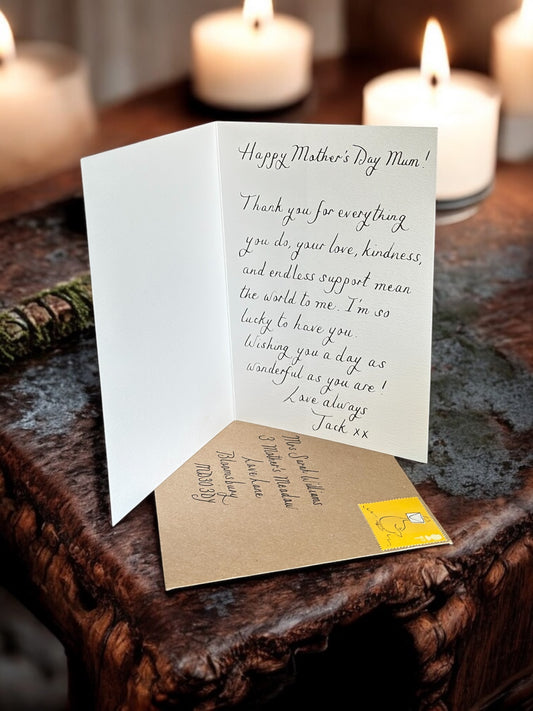 Happy Mother's Day Mum!
Thank you for everything
you do, your love, kindness,
and endless support mean
the world to me. I'm so
lucky to have you.
Wishing you a day as
wonderful as you are!
Love always
Jack xx
Mrs Sarah Williams
3 Mother's Meadow
Love Lane
Bloomsbury